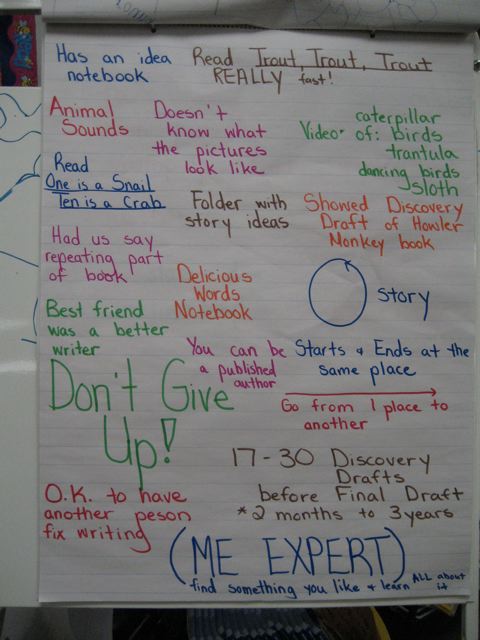 Has an idea
notebook
Read Trout, Trout, Trout
REALLY fast!
Animal
Sounds
Doesn't
know what
the pictures
look like
Video of: birds
caterpillar
trantula
dancing birds
sloth
Read
One is a Snail
Ten is a Crab
Folder with
story ideas
Showed Discovery
Draft of Howler
Monkey book
Had us say
repeating part
of book
Delicious
Words
Notebook
story
Best friend
was a better
writer
You can be
a published
author
Starts & Ends at the
same place
Don't Give
Up!
Go from 1 place to
another
17-30 Discovery
Drafts
before Final Draft
* 2 months to 3 years
O.K. to have
another peson
fix writing
(ME EXPERT)
find something you like & learn ALL about
it